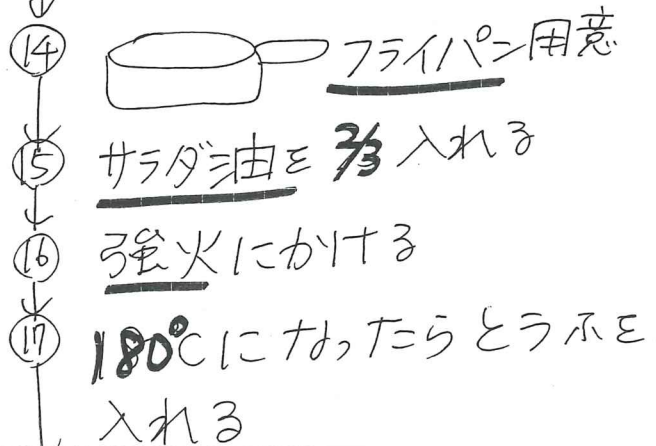 ⑭ フライパン用意
⑮ サラダ油を2/3入れる
⑯ 強火にかける
⑰ 180℃になったらとうふを
入れる